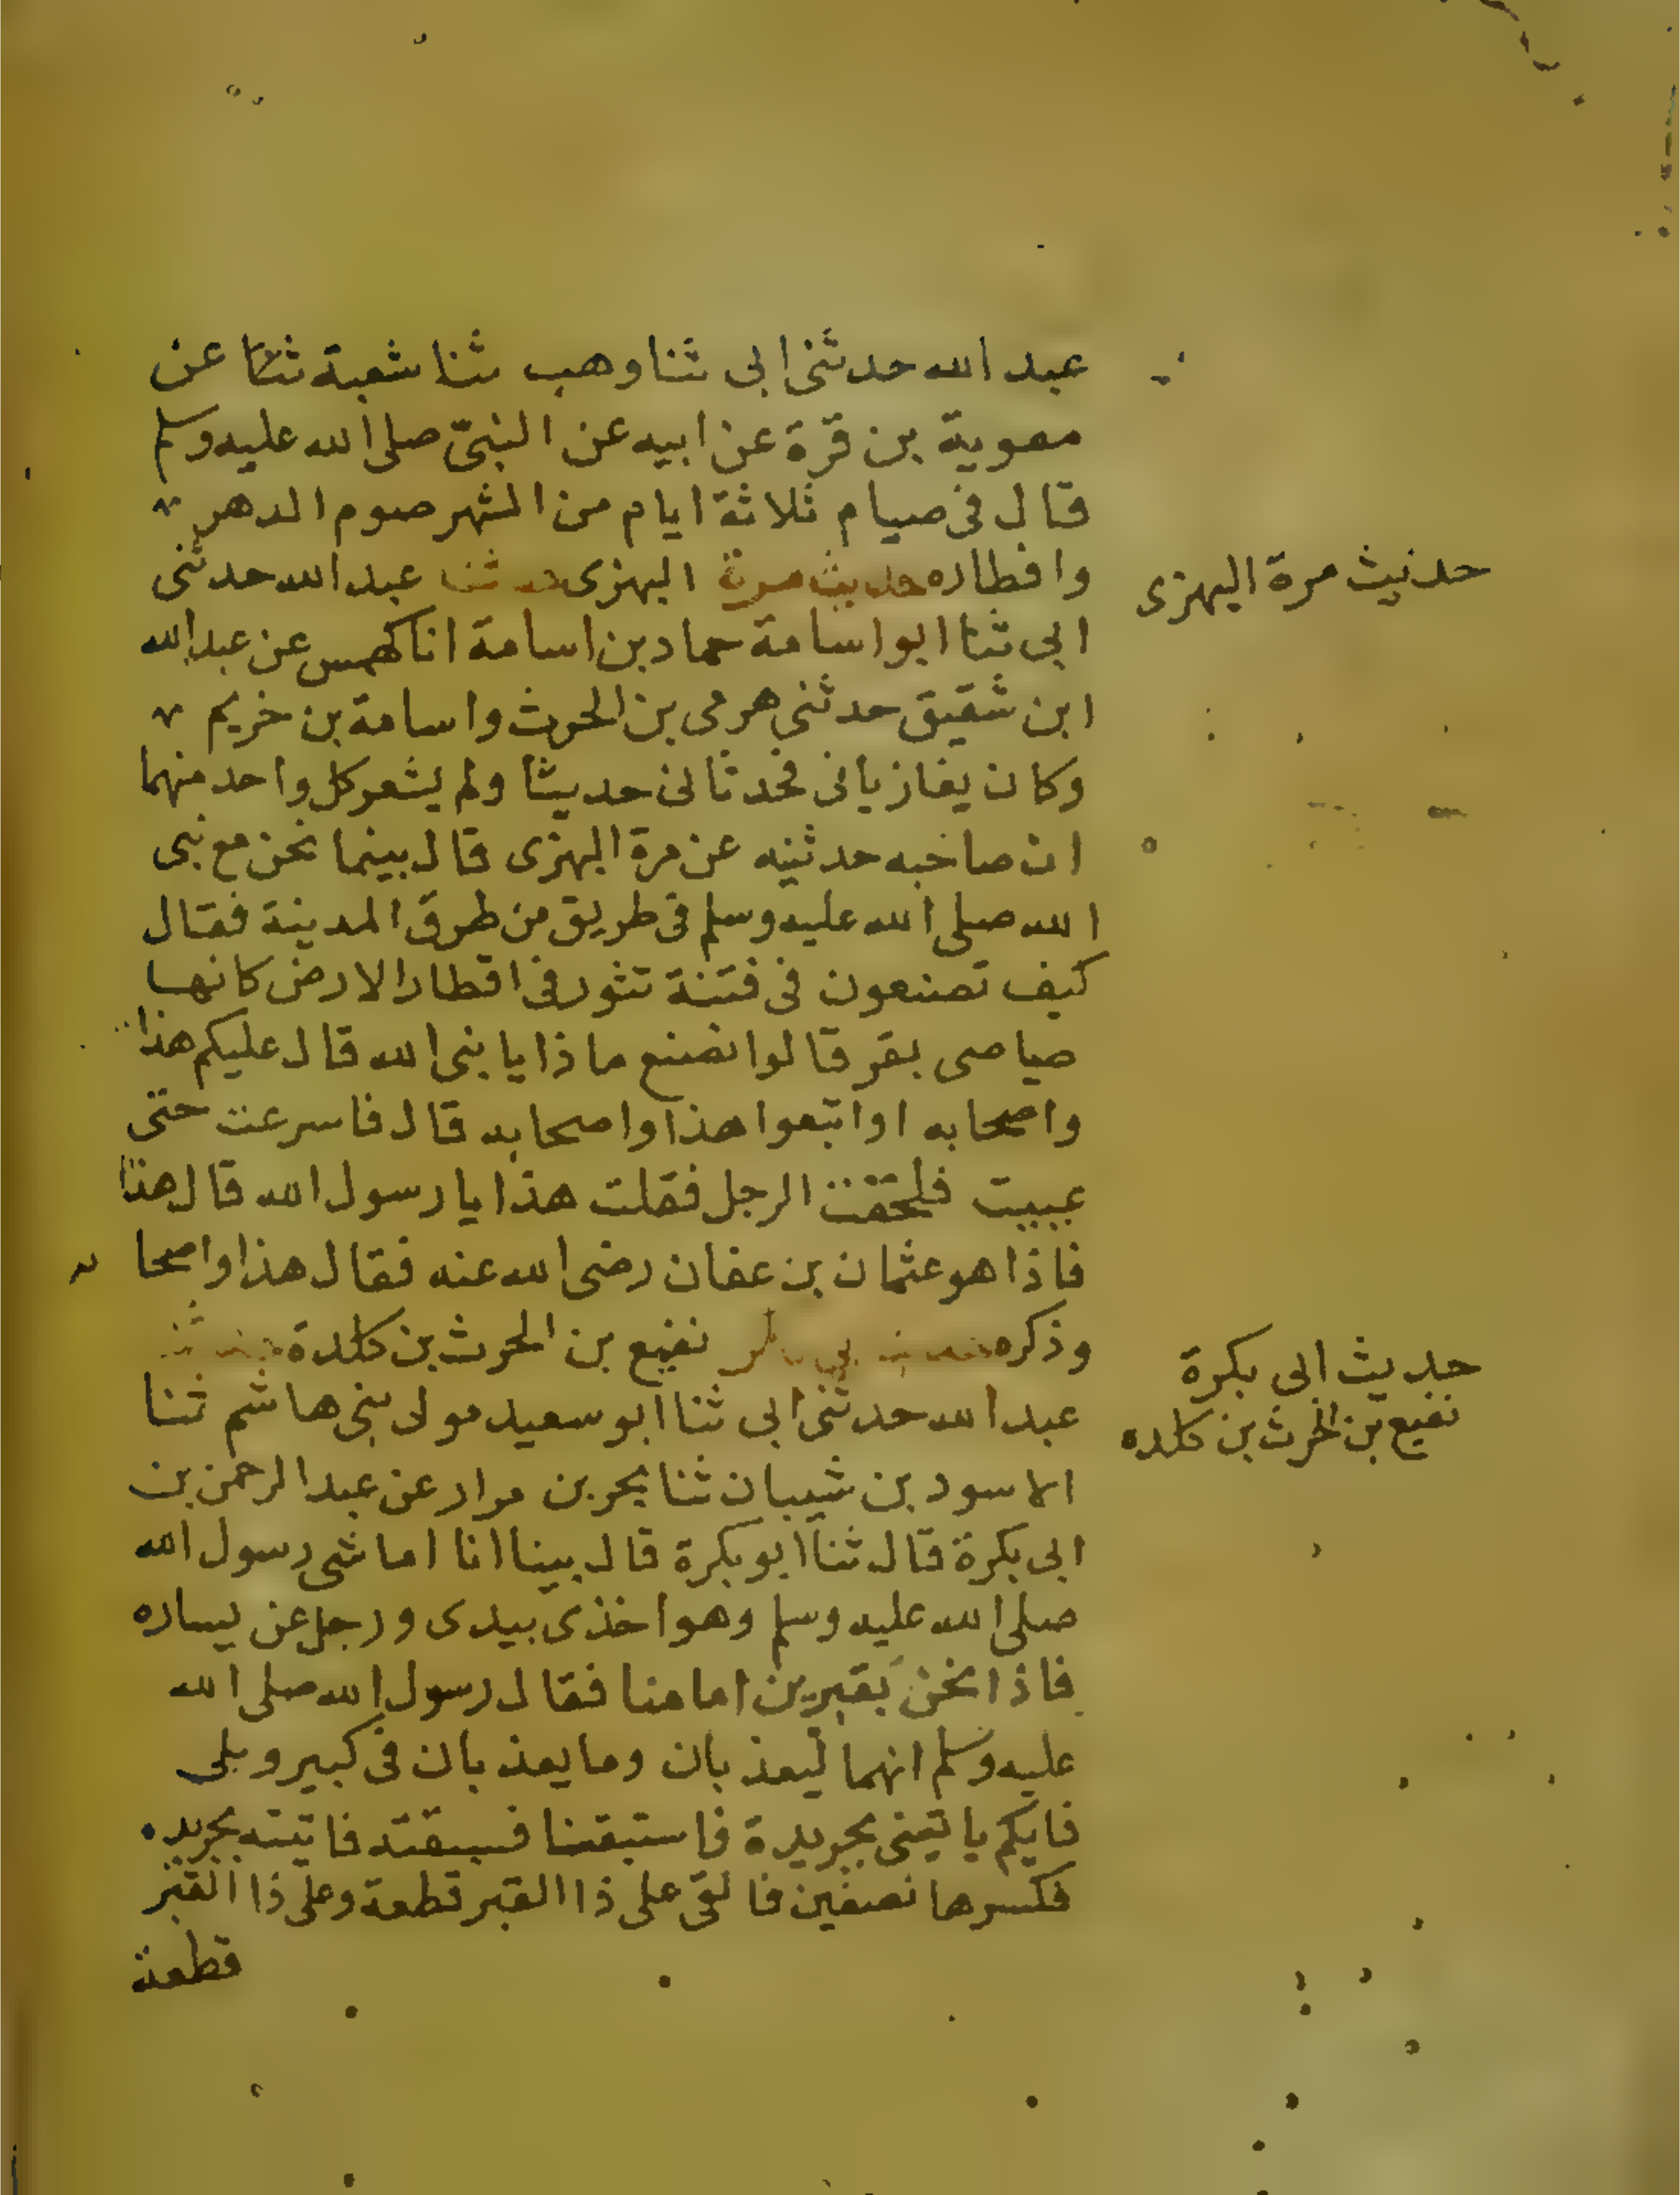 عبد الله حدثنى ابى ثنا وهب ثنا شعبة ثنا عن
معوية بن قرة عن ابيه عن النبىّ صلى الله عليه وسلم
قال فى صيام ثلاثة ايام من الشهر صوم الدهر
وافطاره حديث مرة البهزى حدثنا عبد الله حدثنى
حديث مرة البهزى
ابى ثنا ابو اسامة حماد بن اسامة انا كهمس عن عبد الله
ابن شقيق حدثنى هرمى بن الحرث واسامة بن خريم
وكان يغازيانى فحدثانى حديثا ولم يشعر كل واحد منهما
ان صاحبه حدثنيه عن مرة البهزى قال بينما نحن مع نبى
الله صلى الله عليه وسلم فى طريق من طرق المدينة فقال
كيف تصنعون فى فتنة تثور فى اقطار الارض كانها
صياصى بقر قالوا نصنع ماذا يا نبى الله قال عليكم هذا
واصحابه او اتبعوا هذا واصحابه قال فاسرعت حتى
عييت فلحقت الرجل فقلت هذا يا رسول الله قال هذا
فاذا هو عثمان بن عفان رضى الله عنه فقال هذا واصحا
وذكره حديث ابى بكرة نفيع بن الحرث بن كلدة حدثنا
حديث ابى بكرة
نفيع بن الحرث بن كلده
عبد الله حدثنى ابى ثنا ابو سعيد مولى بنى هاشم ثنا
الاسود بن شيبان ثنا بحر بن مرار عن عبد الرحمن بن
ابى بكرة قال ثنا ابو بكرة قال بينا انا اماشى رسول الله
صلى الله عليه وسلم وهو اخذى بيدى ورجل عن يساره
فاذا نحن بقبرين امامنا فقال رسول الله صلى الله
عليه وسلم انهما ليعذبان وما يعذبان فى كبير وبلى
فايكم ياتينى بجريدة فاستبقنا فسبقته فاتيته بجريده
فكسرها نصفين فالقى على ذا القبر قطعة وعلى ذا القبر
قطعة